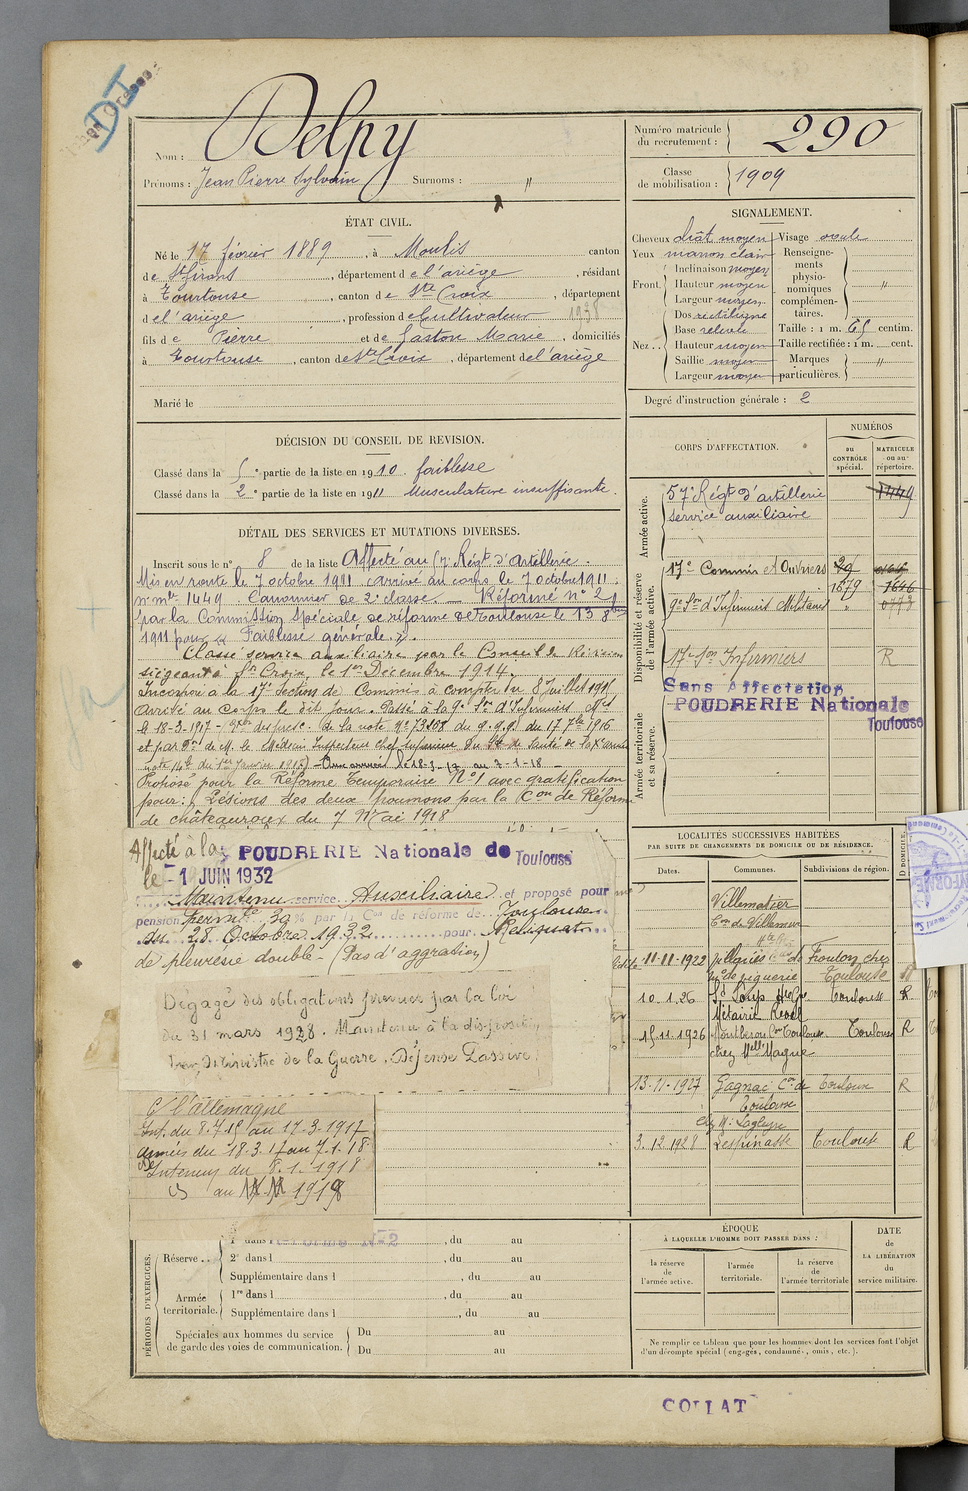 DI
Delpy
Nom :
Prénoms : Jean Pierre Sylvain Surnoms : "
Numéro matricule du recrutement : 290
Classe de mobilisation : 1909
ÉTAT CIVIL.
Né le 17 février 1889, à Moulis canton
de St Girons, département de l'ariège, résidant
à Tourtouse, canton de Ste Croix, département
de l'ariège, profession de Cultivateur 1938
fils de Pierre et de Gaston Marie, domiciliés
à Tourtouse, canton de Ste Croix, département de l'ariège
Marié le
SIGNALEMENT.
Cheveux chât moyen
Yeux marron clair
Front. Inclinaison moyen
Hauteur moyen
Largeur moyen
Nez. Dos rectiligne
Base relevée
Hauteur moyen
Saillie moyen
Largeur moyen
Visage ovale
Renseignements physionomiques complémentaires. "
Taille : 1 m. 65 centim.
Taille rectifiée : 1 m. cent.
Marques particulières. "
Degré d'instruction générale : 2
DÉCISION DU CONSEIL DE REVISION.
Classé dans la 5e partie de la liste en 1910. faiblesse
Classé dans la 2e partie de la liste en 1911 Musculature insuffisante.
CORPS D'AFFECTATION.
NUMÉROS
DU CONTRÔLE spécial.
MATRICULE ou au répertoire.
Armée active.
57e Régt d'artillerie 1449
service auxiliaire
Disponibilité et réserve de l'armée active.
17e Commis et Ouvriers
1879 1646
9e Son d'Infirmiers Militaires "
17e Son Infirmiers R
Sans Affectation
POUDRERIE Nationale
Toulouse
Armée territoriale et sa réserve.
DÉTAIL DES SERVICES ET MUTATIONS DIVERSES.
Inscrit sous le n° 8 de la liste Affecté au 57 Régt d'Artillerie.
Mis en route le 7 octobre 1911. arrivé au corps le 7 octobre 1911.
n° mle 1449. Canonnier de 2e classe. — Réformé n° 2
par la Commission spéciale de réforme de Toulouse le 13 8bre
1911 pour « Faiblesse générale. »
Classé service auxiliaire par le Conseil de Révision
siégeant à Ste Croix, le 1er Décembre 1914.
Incorporé à la 17e Section de Commis à compter du 8 Juillet 1915
Arrivé au corps le dit jour. Passé à la 9e Son d'Infirmiers Mres
le 18-3-1917 - du 17 7bre 1916
et par on de M. le Médecin Inspecteur Chef Supérieur du Sce de Santé de la Xe armée
Proposé pour la Réforme Temporaire N° 1 avec gratification
pour : Lésions des deux poumons par la Con de Réforme
de châteauroux du 7 Mai 1918
Affecté à la POUDRERIE Nationale de Toulouse
le -1 JUIN 1932
Maintenu service Auxiliaire et proposé pour
pension permte 30% par la Con de réforme de Toulouse
du 28 Octobre 1932 pour : Reliquats
de pleurésie double - (Pas d'aggration)
Dégagé des obligations prévues par la loi
du 31 mars 1928. Maintenu à la disposit
Ministre de la Guerre. Défense Passive
C/ l'allemagne
Int. du 8.7.15 au 17-3-1917
armées du 18.3.17 au 7-1-18
Intérieur du 8.1.1918
au 1918
LOCALITÉS SUCCESSIVES HABITÉES
PAR SUITE DE CHANGEMENTS DE DOMICILE OU DE RÉSIDENCE.
Dates. Communes. Subdivisions de région. D DOMICILE
Villematier
Con de Villemur
Hte Gne
11-11-1922
Toulouse R
10.1.26 St Loup Hte Gne Toulouse R
Métairie
15.11.1926 Montberon Con Toulouse Toulouse R
chez Melle Magne
13-11-1927 Gagnac Con de Toulouse R
Toulouse
chez M.
3.12.1928 Lespinasse Toulouse R
PÉRIODES D'EXERCICES.
Réserve. 1re dans l , du au
2e dans l , du au
Supplémentaire dans l , du au
Armée territoriale. 1re dans l , du au
Supplémentaire dans l , du au
Spéciales aux hommes du service de garde des voies de communication. Du au
Du au
ÉPOQUE
À LAQUELLE L'HOMME DOIT PASSER DANS :
la réserve de l'armée active.
l'armée territoriale.
la réserve de l'armée territoriale
DATE de LA LIBÉRATION du service militaire.
Ne remplir ce tableau que pour les hommes dont les services font l'objet
d'un décompte spécial (engagés, condamné, omis, etc.).
COLLAT